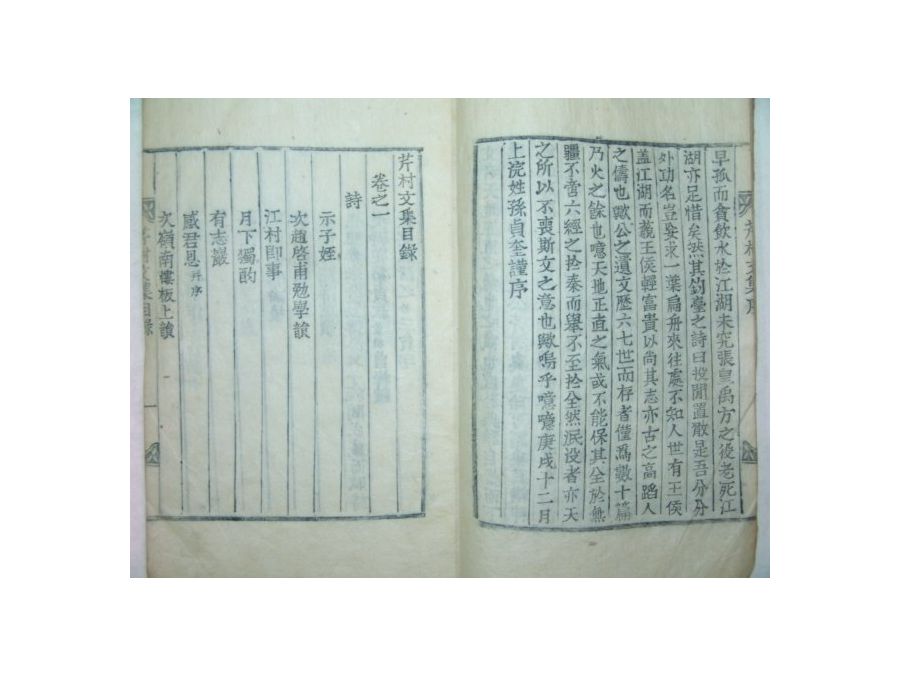 早孤而貪飮水於江湖未究張皇禹方之後老死江
湖亦足惜矣然其釣臺之詩曰投閒置散是吾分分
外功名豈妄求一葉扁舟來往處不知人世有王侯
盖江湖而藐王侯輕富貴以尚其志亦古之高蹈人
之儔也歟公之遺文歷六七世而存者僅爲數十篇
乃火之餘也噫天地正直之氣或不能保其全於無
疆不啻六經之於秦而擧不至於全然泯没者亦天
之所以不喪斯文之意也歟嗚乎噫噫庚戌十二月
上浣姓孫貞奎謹序
芹村文集序
芹村文集目錄
卷之一
詩
示子姪
次趙啓甫勉學韻
江村卽事
月下獨酌
有志巖
感君恩 幷序
次嶺南樓板上韻
芹村文集目錄 一